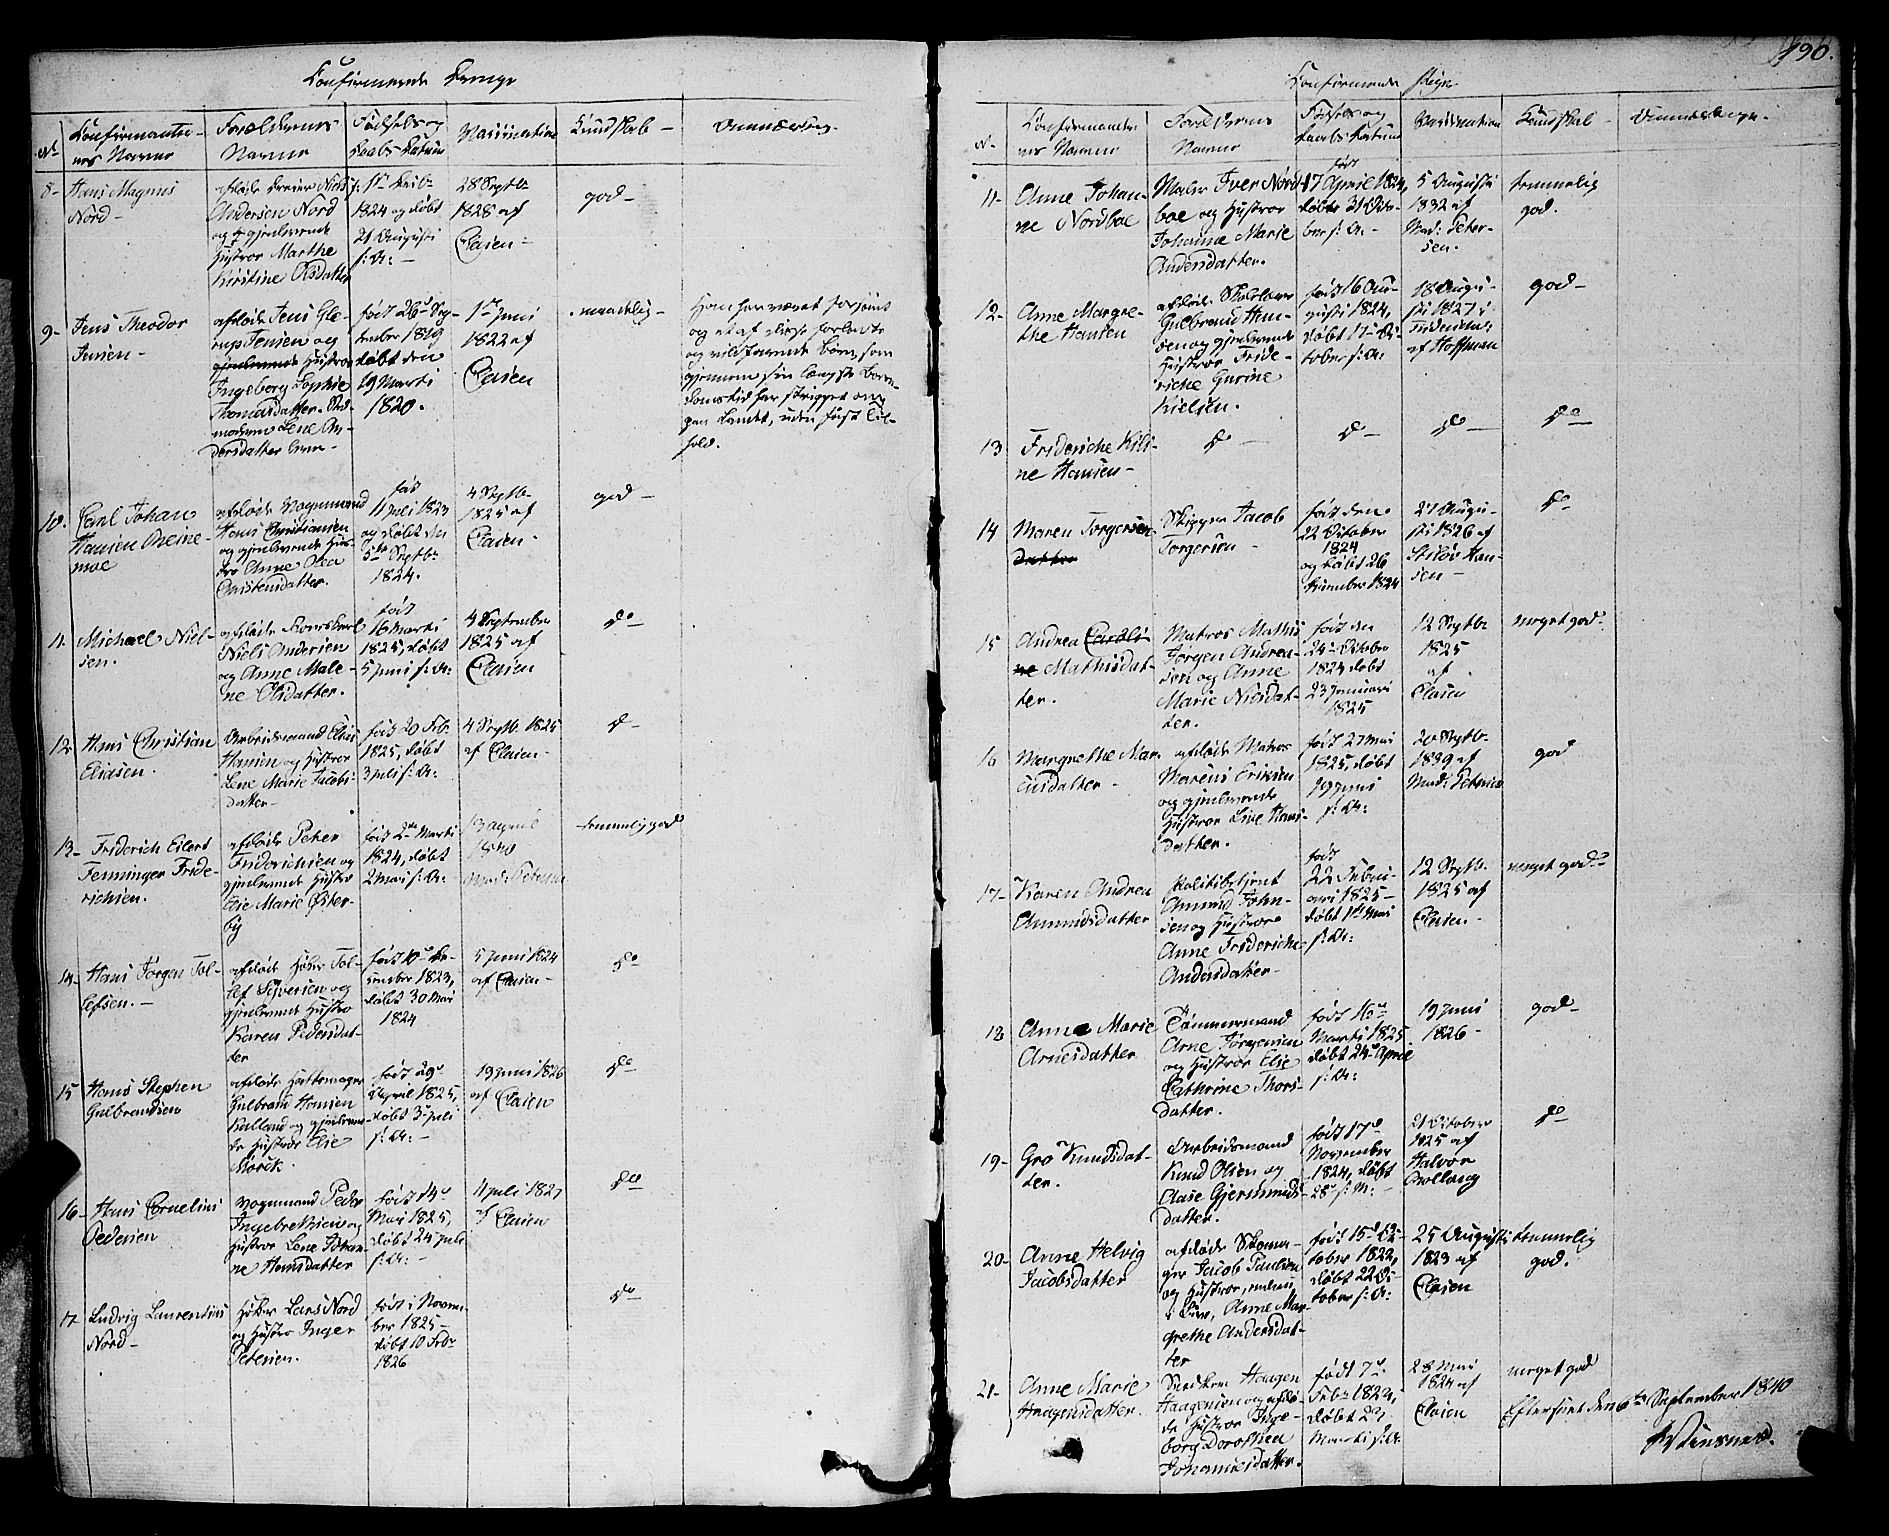 190.
Confirmerede Drenge
No
Confirmanter-
nes Navne
Forældrenes
Navne
Fødsels og
Daabs Datum
Vaccination
Kundskab
Anmærkning
8- Hans Magnus
Nord -
afdøde Dreier Niels
Andersen Nord
og gjenlevende
Hustroe Marthe
Kirstine Olsdatter
1824 og døbt
21 Augusti
s: A: -
28 Septbr
1828 af
Claien -
god -
9- Jens Theodor
Jensen -
afdøde Jens Gle-
rup Jensen og
gjenlevende Hustroe
Ingeborg Sophie
Thomasdatter.
moderen Lene An-
dersdatter
født 26de Sep-
tember 1819
døbt den
19 Marti
1820.
1ste Juni
1822 af
Claien
maadelig -
Han har været forsømt
og et af disse forladte
og vildfarende Børn, som
gjennem sin længste Barn-
domstid har strippet om-
gen Landet, uden fast Til-
hold.
10. Carl Johan
Hansen Aneine-
moe
afdøde Vognmand
Hans Christiansen
og gjenlevende Hus-
tro Anne Olea
Christensdatter.
født
11 Juli 1823
og døbt den
5te Septbr
1824.
4 Septbr
1825 af
Claien -
god -
11. Michael Niel-
sen.
afdøde
Niels Andersen
og Anne Male-
ne Olsdatter.
født
16 Marti
1825, døbt
5 Juni s: A:
4 September
1825 af
Claien
do -
12 Hans Christian
Eliasen.
Arbeidsmand Elias
Hansen og Hustroe
Lene Marie Jacobs-
datter -
født 20 Feb.
1825, døbt
3 Juli s: A: -
4 Septb. 1825
af Claien -
do -
13- Friderich Eilert
Femminger Fride-
richsen.
afdøde Peter
Friderichsen og
gjenlevende Hustro
Else Marie Øster-
by
født 2den Marti
1824, døbt
2 Mai s: A:
13 April
1840
Mad: Petersen
temmelig god
14- Hans Jørgen Tol-
lefsen. -
afdøde Høker Tol-
lef Syversen og
gjenlevende Hustro
Karen Pedersdat-
ter
født 10de De-
cember 1823,
døbt 30 Mai
1824
5 Juni 1824
af Claien -
do
15 Hans Stephen
Gulbrandsen
afdøde Hattemager
Gulbrand Hansen
Kulland og gjenleven-
de Hustroe Else
Mørck.
født 29de
April 1825,
døbt 3de Juli
s: A: -
19 Juni 1826
af Claien
do
16- Hans Cornelius
Pedersen
Vognmand Peder
Ingebrethsen og
Hustroe Lene Johan-
ne Hansdatter
født 14de
Mai 1825,
døbt 24 Juli
s: A: -
11 Juli 1827
af Claien
do
17- Ludvig Laurentius
Nord -
Høker Lars Nord
og Hustro Inger
Petersen.
født i Novem-
ber 1825 -
døbt 10 Febr
1826
do
Confirmerede Piger
No
Confirmanter-
nes Navne
Forældrenes
Navne
Fødsels og
Daabs Datum
Vaccination
Kundskab
Anmærkninger.
11- Anne Johan-
ne Nordboe
Maler Iver Nord-
boe og Hustroe
Johanne Marie
Andersdatter.
født
17 April 1824,
døbt 31 Octo-
ber s: A: -
5 Augusti
1832 af
Mad: Peter-
sen.
temmelig
god.
12- Anne Margre-
the Hansen
afdøde Skolelærer
Gulbrand Han-
sen og gjenlevende
Hustroe Fride-
riche Gurine
Nielsen.
født 16 Au-
gusti 1824,
døbt 17de Oc-
tober s: A:
18 Augu-
sti 1827 i
af Hoffman
god -
13 Frideriche Kilsi-
ne Hansen -
do -
do -
do -
do -
14 Maren Torgersen
Datter
Skipper Jacob
Torgersen -
født den
22 October
1824
og døbt 26
December 1824
27 Augu-
sti 1826 af
Han-
sen -
do
15 Andrea Caroli-
ne Mathisdat-
ter.
Matros Mathis
Jørgen Andrea-
sen og Anne
Marie Nilsdat-
ter.
født den
24de October
1824 døbt
23 Januari
1825
12 Septbr
1825
af
Claien
meget god.
16 Margrethe Mar-
cusdatter -
afdøde Matros
Marcus Eriksen
og gjenlevende
Hustroe Live Hans-
datter.
født 27 Mai
1825, døbt
19 Juni
s: A:
20 Septbr.
1839 af
Mad: Petersen
god
17- Karen Andrea
Amundsdatter
Politibetjent
Amund John-
sen og Hustroe
Anne Friderichs
Andersdatter -
født
22 Febru-
ari 1825 -
døbt 1ste Mai
s: A:
12 Septbr.
1825 af
Claien. -
meget god.
18 Anne Marie
Arnesdatter
Tømmermand
Arne Jørgensen
og Hustroe Else
Cathrine Thors-
datter.
født 16de
Marti 1825.
døbt 24de April
s: A:
19 Juni
1826 -
god -
19- Gro Knudsdat-
ter.
Arbeidsmand
Knud Olsen og
Aase Gjermunds-
datter.
født 17de
November
1824, døbt
28de s: M: -
21 October
1825 af
Halvor
do -
20- Anne Helvig
Jacobsdatter
afdøde Skoma-
ger Jacob Paulsen
og Hustroe, endnu
i Live, Anne Mar-
grethe Andersdat-
ter
født 15de Oc-
tober 1822,
døbt 22 Oc-
tober s: A:
25 Augusti
1823 af
Claien
temmelig
god.
21- Anne Marie
Haagensdatter.
Snedker Haagen
Haagensen og afdø-
de Hustroe Inge-
borg Dorothea
Johannesdatter.
født 7de
Febr 1824,
døbt 27
Marti s: A:
28 Mai
1824 af
Claien
meget god
Efterseet den 6te September 1840